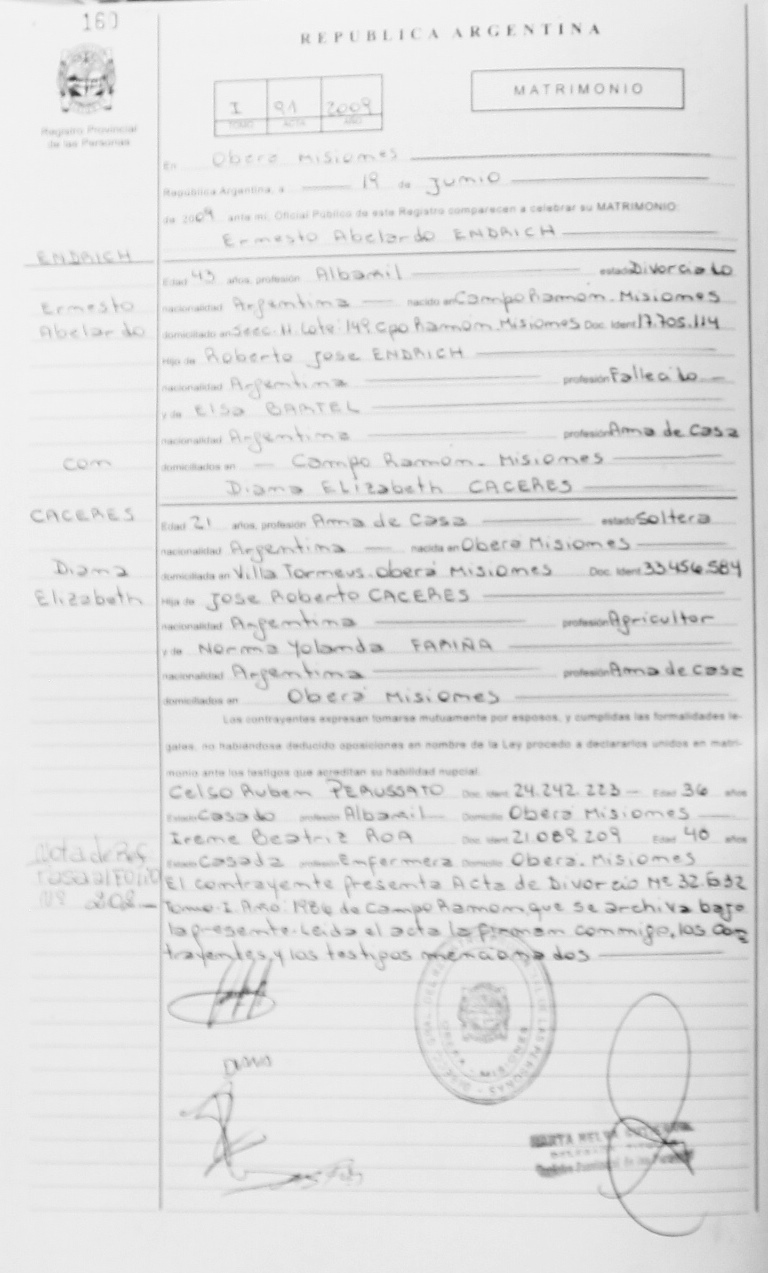 160
REPUBLICA ARGENTINA
MATRIMONIO
I 91 2009
TOMO ACTA AÑO
Registro Provincial
de las Personas
En Oberá Misiones
República Argentina, a 19 de Junio
de 2009 ante mí, Oficial Público de este Registro comparecen a celebrar su MATRIMONIO:
Ernesto Abelardo ENDRICH
ENDRICH
Edad 43 años, profesión Albañil estado Divorciado
Ernesto
nacionalidad Argentina nacido en Campo Ramón. Misiones
Abelardo
domiciliado en Secc. II. Lote: 149. Cpo Ramón. Misiones Doc. Ident 17.705.114
Hijo de Roberto Jose ENDRICH
nacionalidad Argentina profesión Fallecido
y de Elsa BARTEL
nacionalidad Argentina profesión Ama de Casa
con
domiciliados en Campo Ramón. Misiones
Diana Elizabeth CACERES
CACERES
Edad 21 años, profesión Ama de Casa estado Soltera
nacionalidad Argentina nacida en Oberá Misiones
Diana
domiciliada en Villa Torneus. Oberá Misiones Doc. Ident 33.456.584
Elizabeth
Hija de Jose Roberto CACERES
nacionalidad Argentina profesión Agricultor
y de Norma Yolanda FARIÑA
nacionalidad Argentina profesión Ama de Casa
domiciliados en Oberá Misiones
Los contrayentes expresan tomarse mutuamente por esposos, y cumplidas las formalidades le-
gales, no habiéndose deducido oposiciones en nombre de la Ley procedo a declararlos unidos en matri-
monio ante los testigos que acreditan su habilidad nupcial.
Celso Ruben PERUSSATO Doc. Ident 24.242.223 Edad 36 años
Estado Casado profesión Albañil Domicilio Oberá Misiones
Irene Beatriz ROA Doc. Ident 21.089.209 Edad 40 años
Estado Casada profesión Enfermera Domicilio Oberá. Misiones
Nota de Ref
pasa al Folio
Nº 202
El contrayente presenta Acta de Divorcio Nº 32.
Tomo: I. Año: de Campo Ramón, que se archiva bajo
la presente. Leída el acta la firman conmigo, los con
trayentes, y los testigos mencionados
DIANA
MARTA
Registro Provincial de las Personas